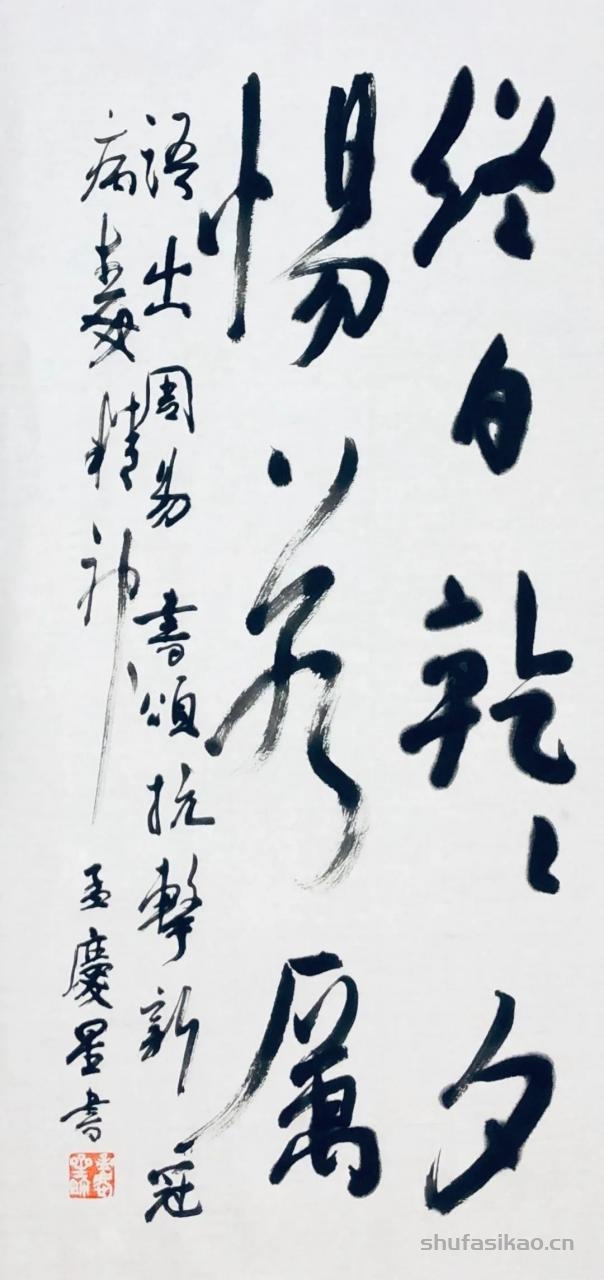 終日乾乾夕
惕若厲
語出周易書頌抗擊新冠
病毒精神
孟慶星書
shufasikao.cn